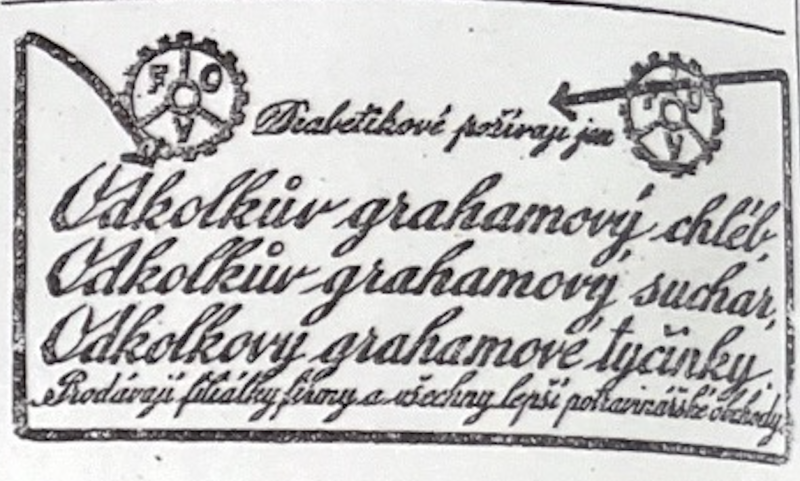 F O V
F O V
Diabetikové požívají jen
Odkolkův grahamový chléb,
Odkolkův grahamový suchar,
Odkolkovy grahamové tyčinky.
Prodávají filiálky firmy a všechny lepší potravinářské obchody.